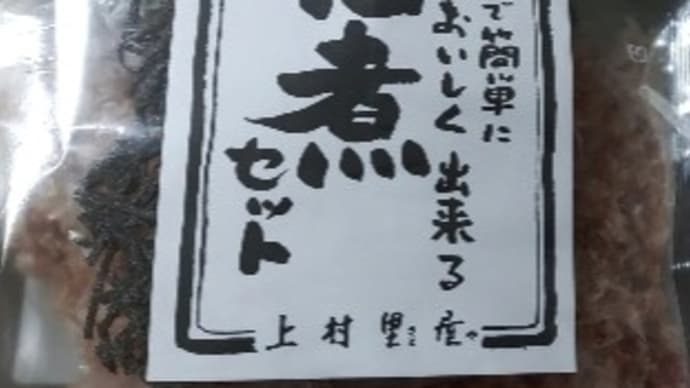 で簡単に
おいしく出来る
煮
セット
上村里屋